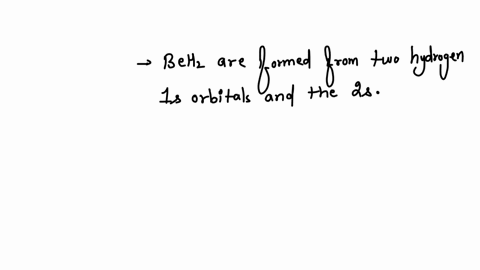 → BeH₂ are formed from two hydrogen
1s orbitals and the 2s.